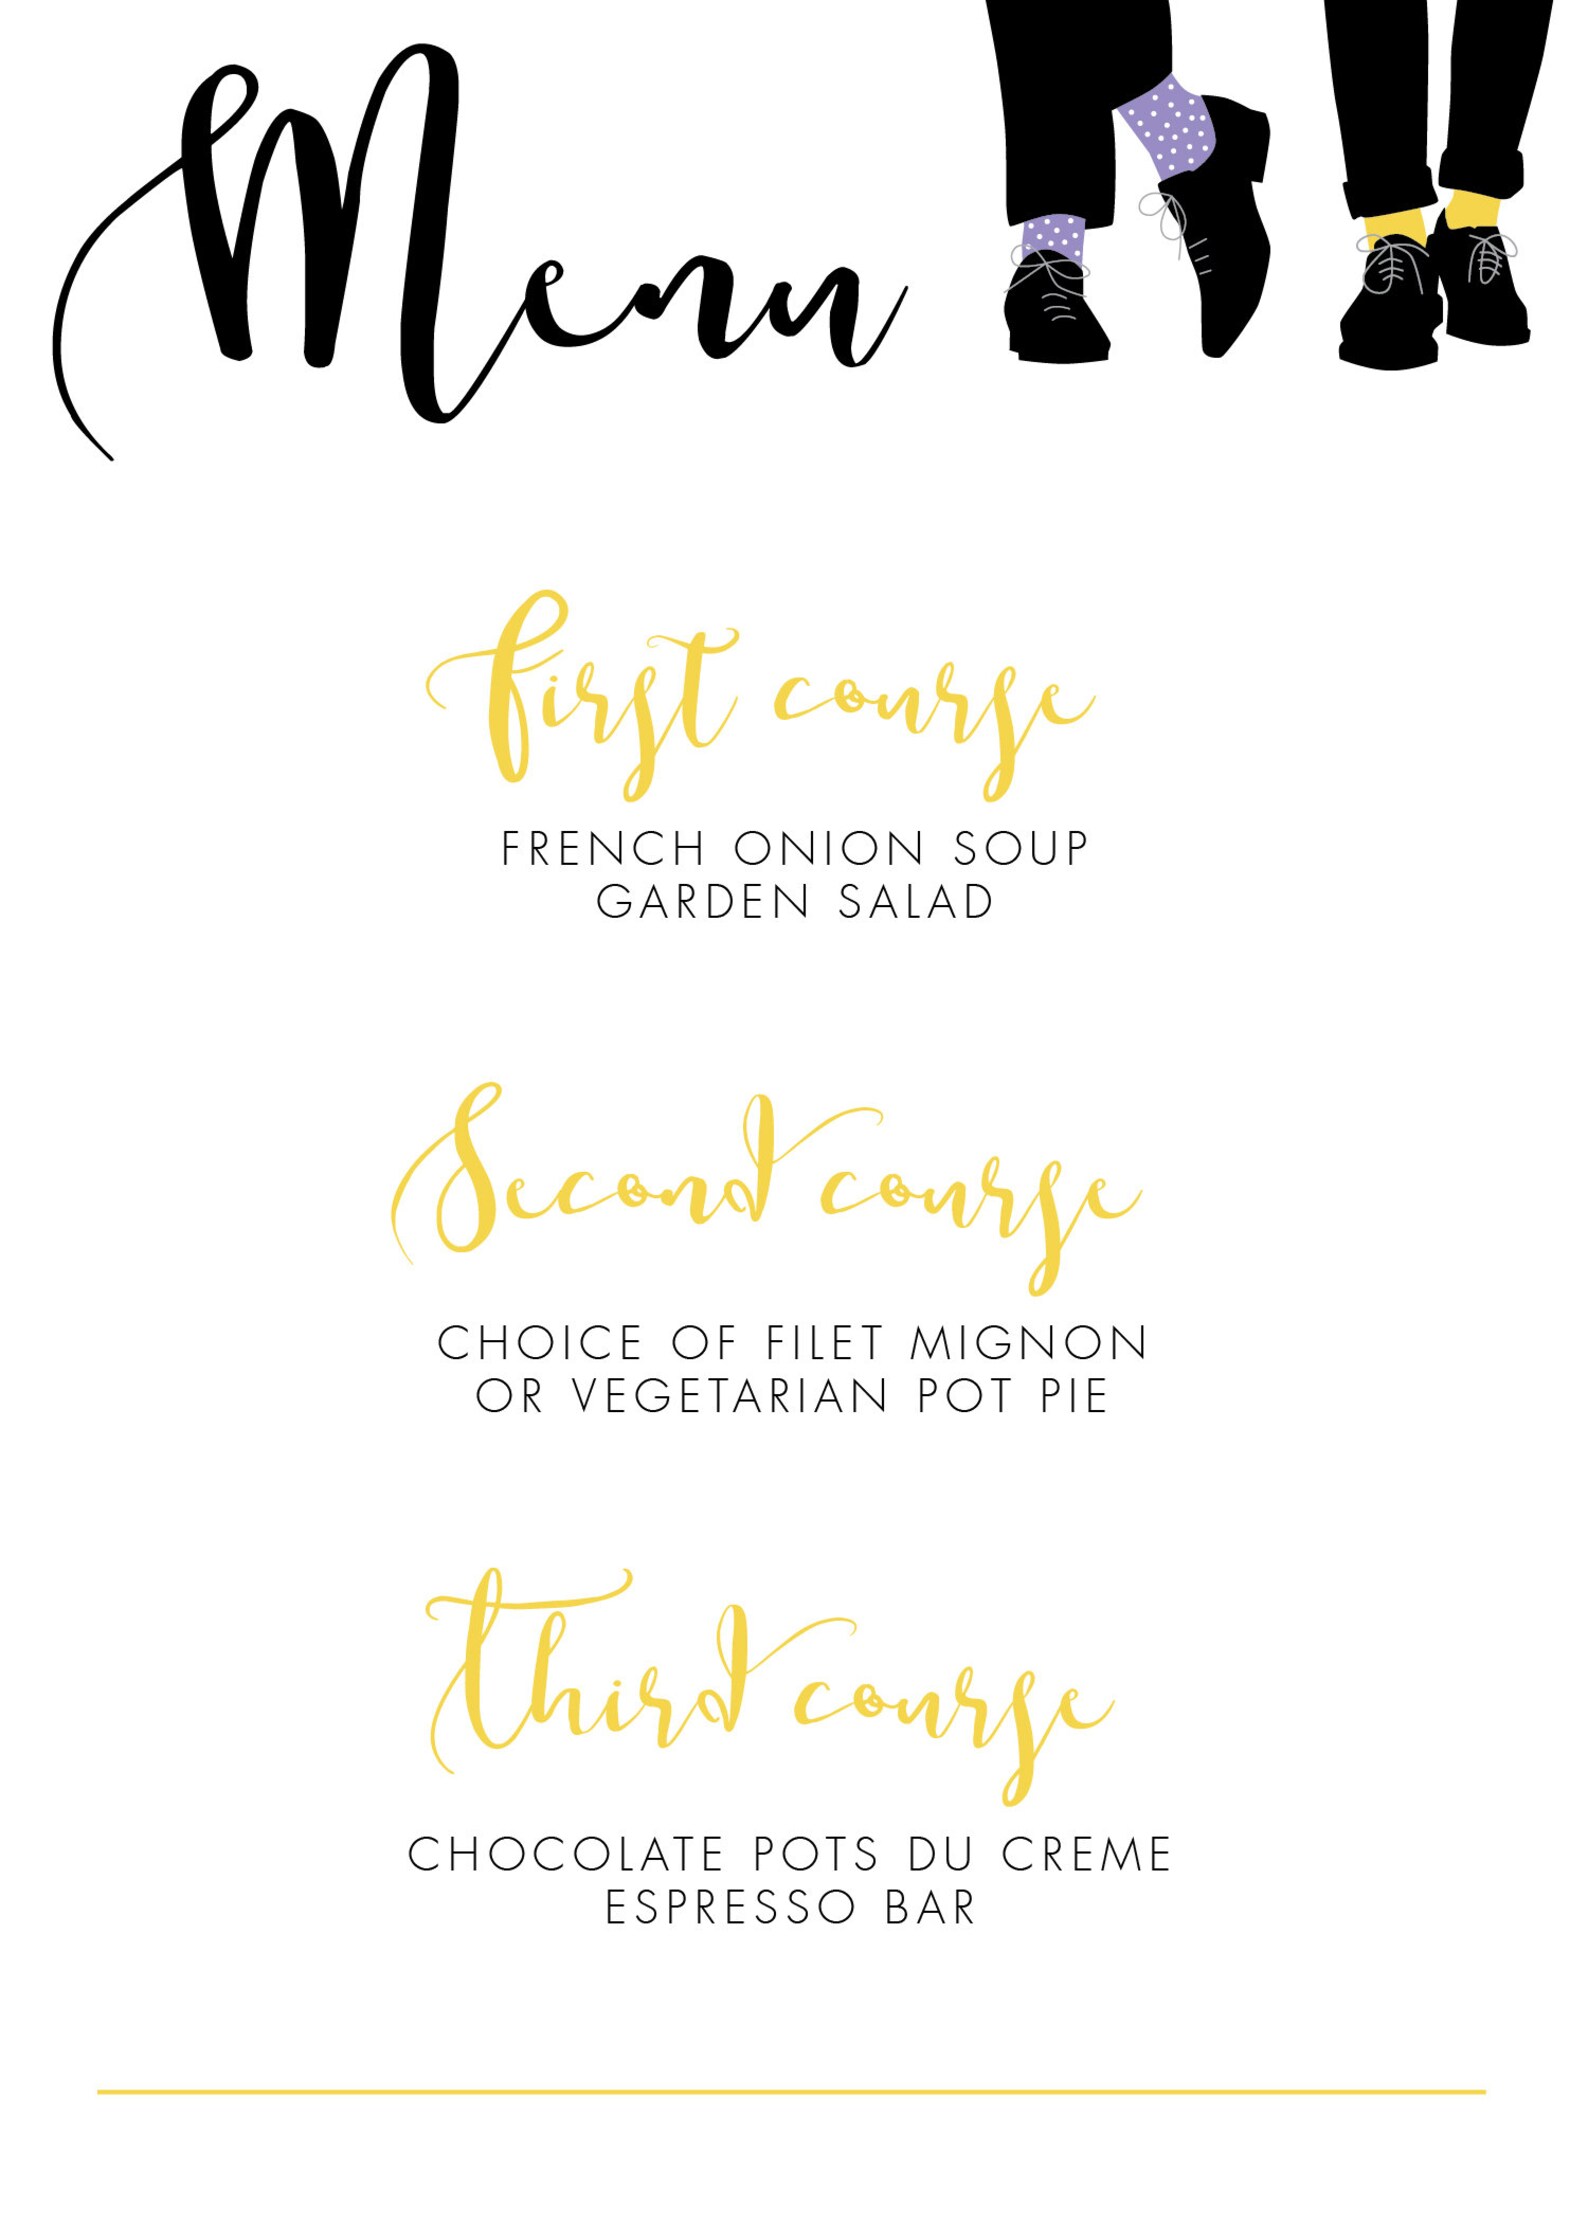 Menu
First course
FRENCH ONION SOUP
GARDEN SALAD
Second course
CHOICE OF FILET MIGNON
OR VEGETARIAN POT PIE
Third course
CHOCOLATE POTS DU CREME
ESPRESSO BAR